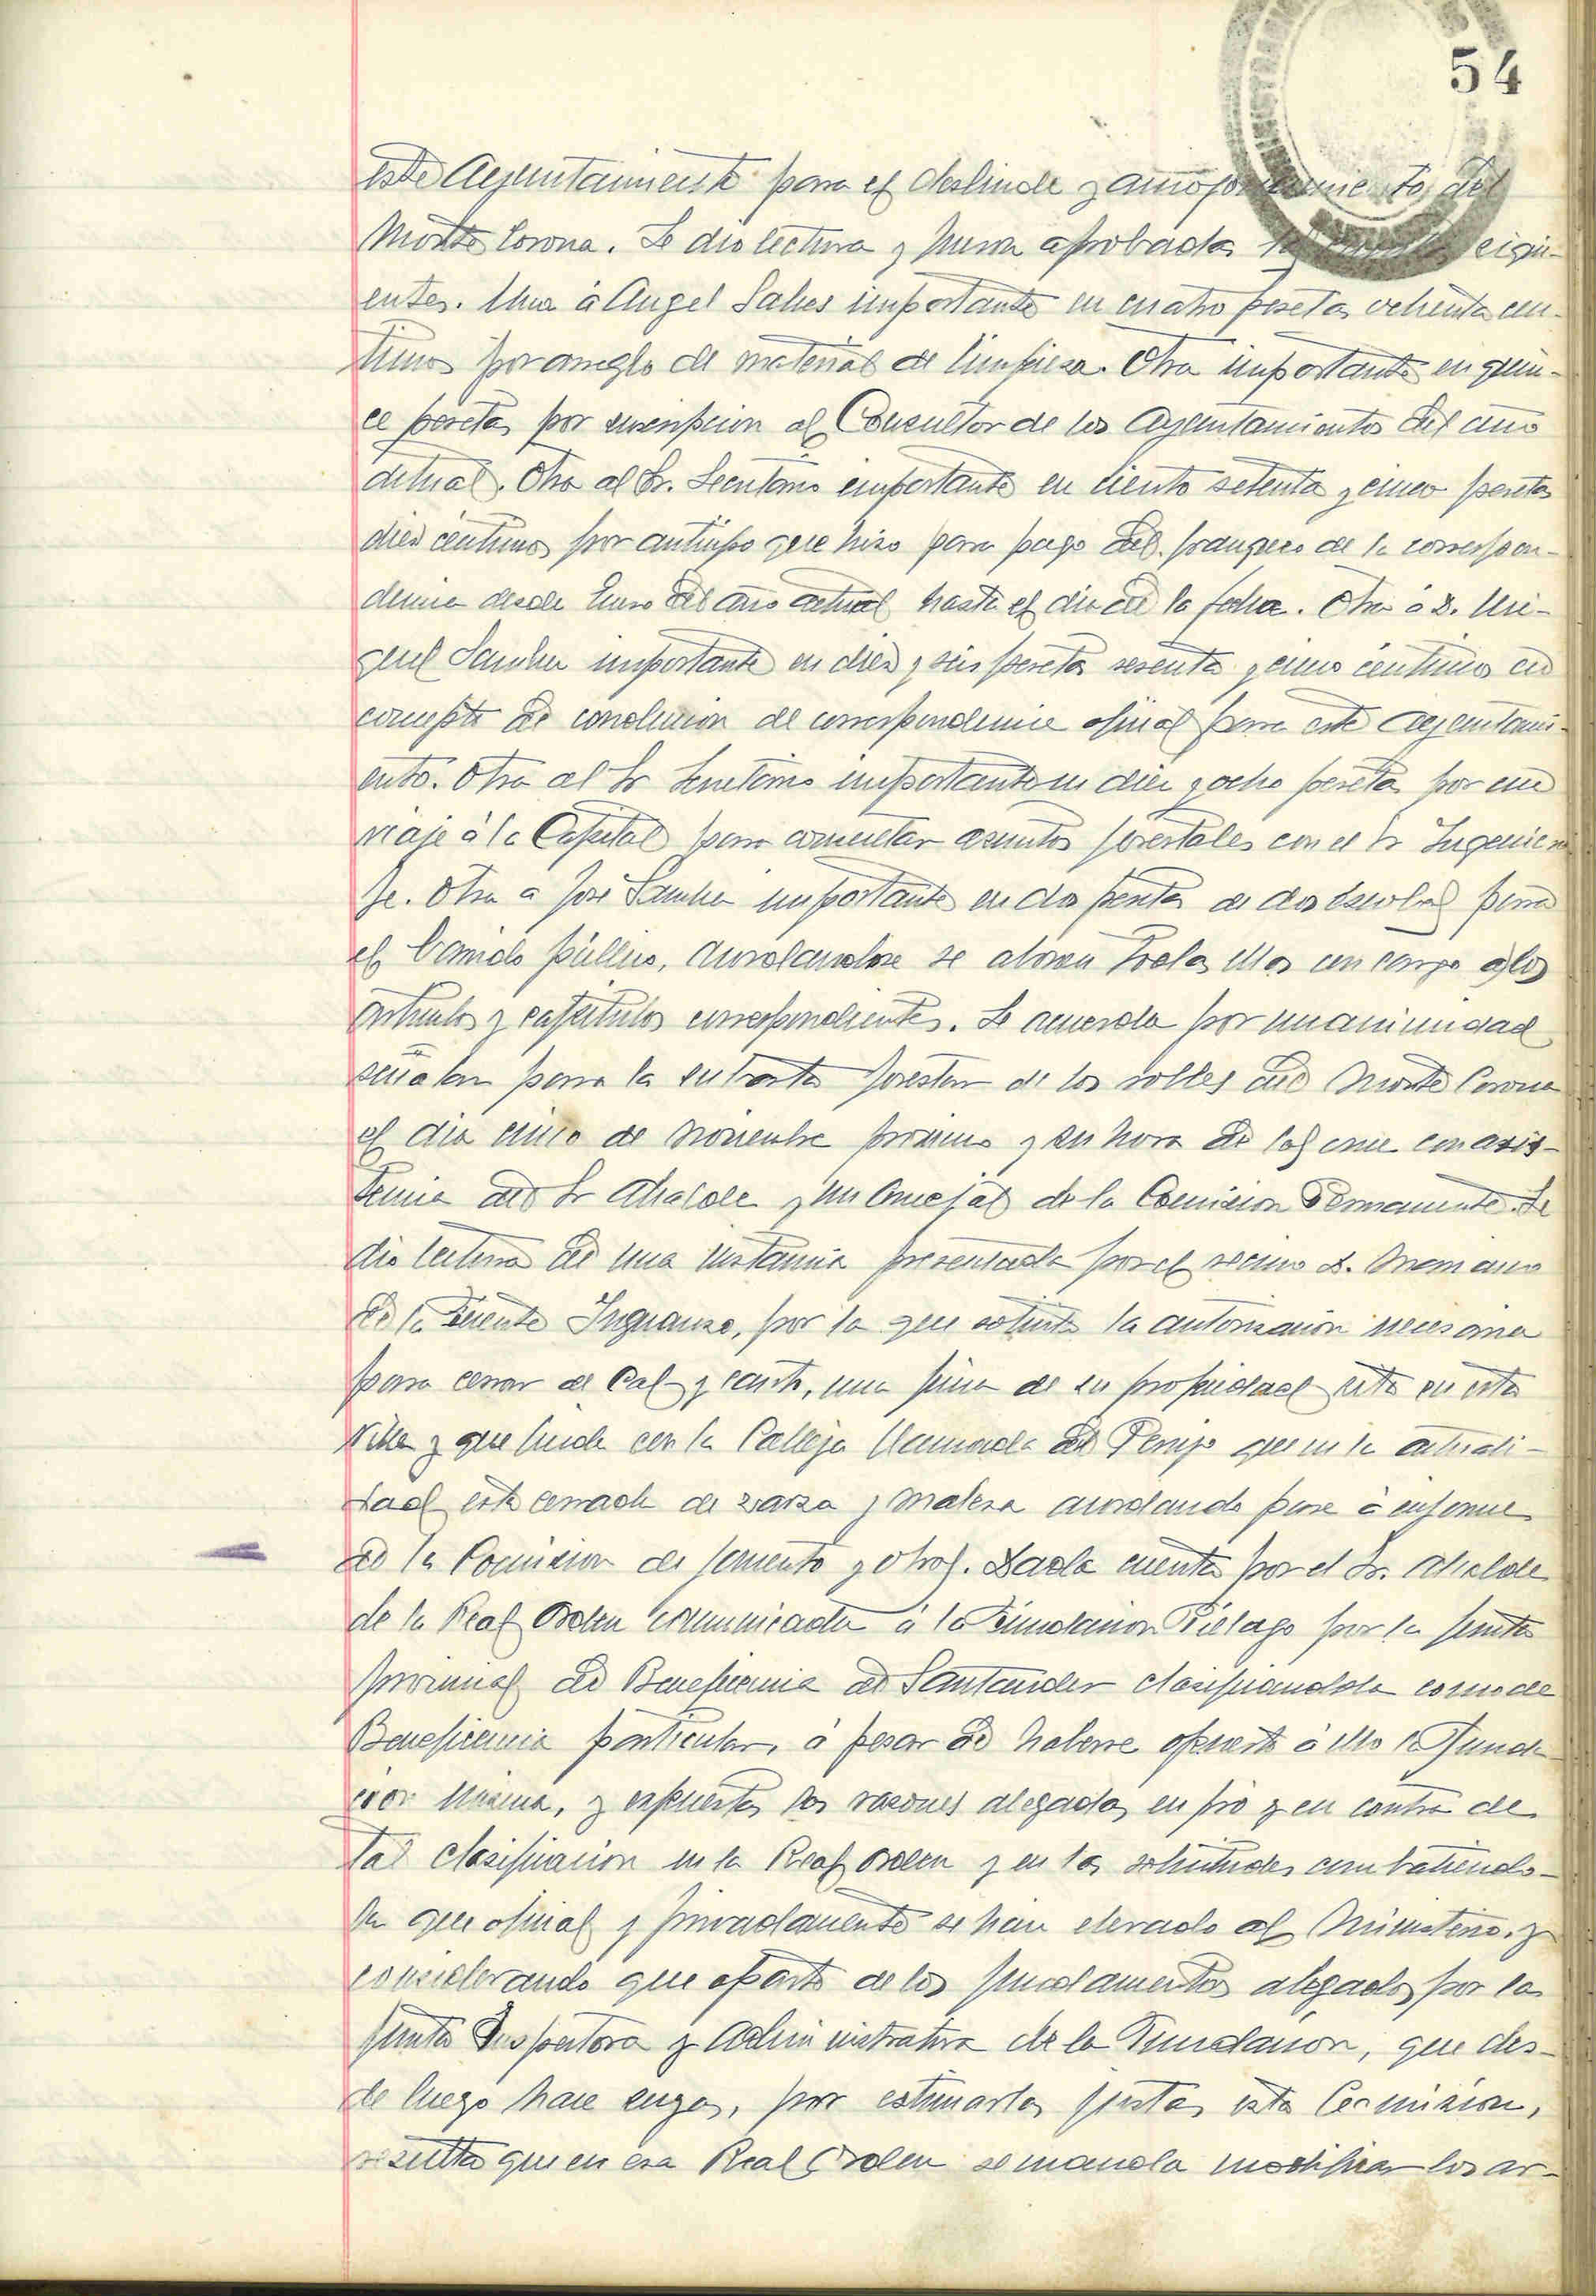 54
este Ayuntamiento para el deslinde y amojonamiento del
Monte Corona. Se dio lectura y fueron aprobadas las cuentas sigui-
entes. Una á Angel Salces importante en cuatro pesetas ochenta cen-
timos por arreglo de material de limpieza. Otra importante en quin-
ce pesetas por suscripcion al Consultor de los Ayuntamientos del año
actual. Otra al Sr. Secretario importante en ciento setenta y cinco pesetas
diez centimos por anticipo que hizo para pago del franqueo de la correspon-
dencia desde Enero del año actual hasta el dia de la fecha. Otra á D. Mi-
guel Sanchez importante en diez y seis pesetas sesenta y cinco centimos en
concepto de conduccion de correspondencia oficial para este Ayuntami-
ento. Otra al Sr Secretario importante en diez y ocho pesetas por un
viaje á la Capital para comentar asuntos forestales con el Sr Ingeniero
Je. Otra a José Sanchez importante en dos pesetas de dos escobas para
el barrido público, acordandose se abonen todas ellas con cargo a los
articulos y capitulos correspondientes. Se acuerda por unanimidad
señalar para la subasta forestar de los rolles del Monte Corona
el dia cinco de Noviembre proximo y su hora de las once con asis-
tencia del Sr Alcalde y un Concejal de la Comision Permanente. Se
dio lectura de una instancia presentada por el vecino D. Mariano
de la Fuente Inguanzo, por la que solicita la autorizacion necesaria
para cerrar de Cal y canto, una finca de su propiedad sita en esta
Villa y que linda con la Calleja llamada del que en la actuali-
dad está cerrada de zarza y maleza acordando pase á informe
de la Comision de fomento y obras. Dada cuenta por el Sr. Alcalde
de la Real Orden comunicada á la Fundacion Piélago por la Junta
provincial de Beneficencia de Santander clasificandola como de
Beneficencia particular, á pesar de haberse opuesto á ello la Funda-
cion misma, y expuestas las razones alegadas en pro y en contra de
tal clasificacion en la Real Orden y en las solicitudes combatiendo-
la que oficial y privadamente se han elevado al Ministerio. y
considerando que aparte de los fundamentos alegados por la
Junta Inspectora y Administrativa de la Fundacion, que des-
de luego hace suyos, por estimarlos justos esta Comision,
resulta que en esa Real Orden se manda modificar los ar-